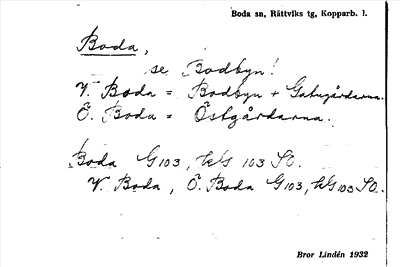 Boda sn, Rättviks tg, Kopparb. l.
Boda,
se Bodbyn!
V. Boda = Bodbyn + Gatugårdarna.
Ö. Boda = Östgårdarna.
Boda G103, kG 103 SO.
V. Boda, Ö. Boda G103, kG 103 SO.
Bror Lindén 1932